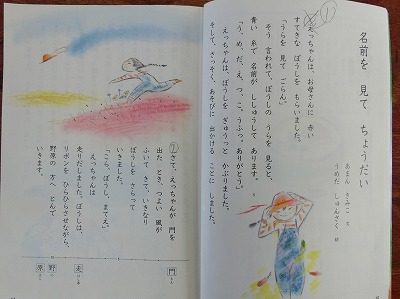 名前を 見て ちょうだい
あまん きみこ 文
うめだ しゅんさく 絵
①
えっちゃんは、お母さんに 赤い
すてきな ぼうしを もらいました。
「うらを 見て ごらん。」
そう 言われて、ぼうしの うらを 見ると、
青い 糸で 名前が ししゅうして あります。
「う、め、だ、え、つ、こ。うふっ。ありがとう。」
えっちゃんは、ぼうしを ぎゅうっと かぶりました。
そして、さっそく、あそびに 出かける ことに しました。
②さて、えっちゃんが 門を
出た とき、つよい 風が
ふいて きて、いきなり
ぼうしを さらって
いきました。
「こら、ぼうし、まてえ。」
えっちゃんは
走りだしました。ぼうしは、
リボンを ひらひらさせながら、
野原の 方へ とんで
いきます。
門
走
野
原